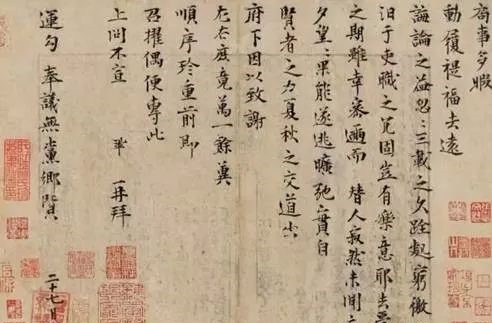 局事多暇
動履禔福去遠
誨論之益忽〻三載之久跧處窮徼
汩于吏職之冗固豈有樂意耶去受
之期雖幸密邇而替人寂然未聞
夕望〻果能遂逃曠弛實自
賢者之力夏秋之交道出
府下因以致謝
左右庶竟萬一餘冀
順序珍重前即
召擢偶便專此
上問不宣 鞏再拜
運勾奉議無黨鄉賢
二十七日